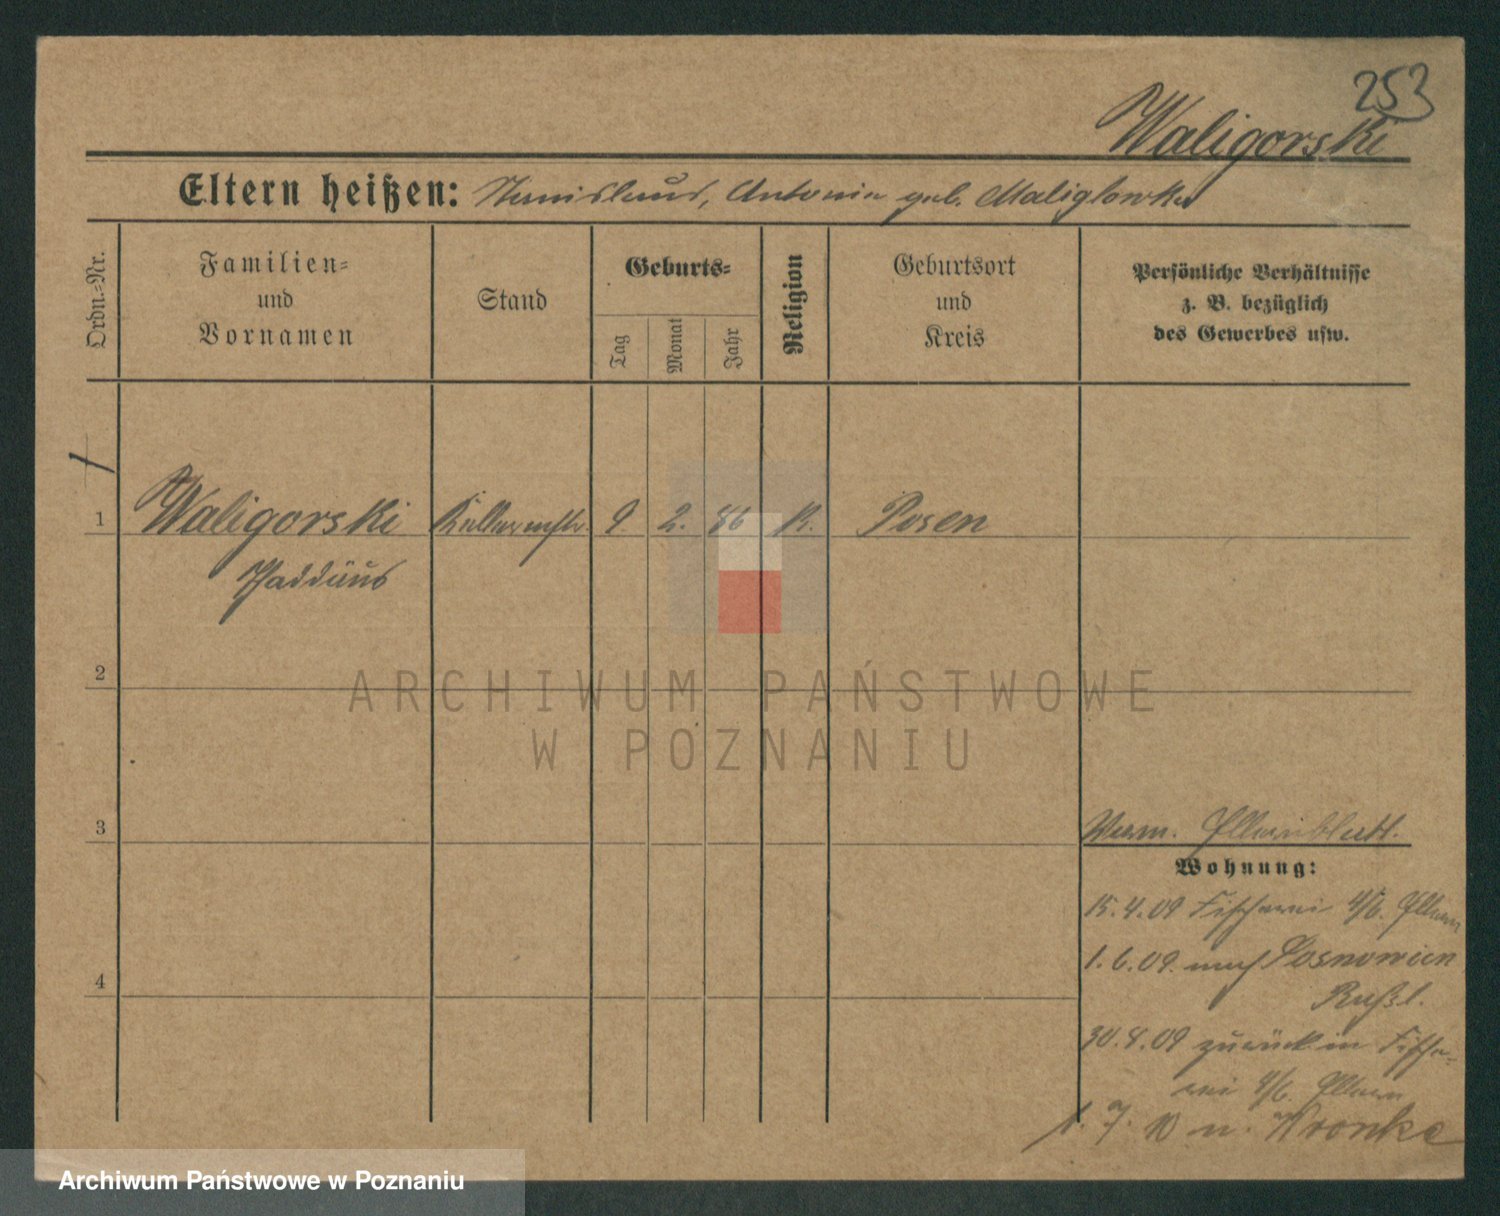 253
Waligorski
Eltern heißen: Stanislaus, Antonie geb. Maliglowka
Ordn.-Nr.
Familien-
und
Vornamen
Stand
Geburts-
Tag
Monat
Jahr
Religion
Geburtsort
und
Kreis
Persönliche Verhältnisse
z. B. bezüglich
des Gewerbes usw.
1 Waligorski 9 2. 86 K. Posen
Thaddäus
2
ARCHIWUM PAŃSTWOWE
W POZNANIU
3
4
Wohnung:
15.4.09 Fischerei 4/6. Eltern
1.6.09. nach Sosnowicen
Rußl.
30.8.09 zurück in Fische-
rei 4/6. Eltern
1. 7. 10 n. Wronke
Archiwum Państwowe w Poznaniu